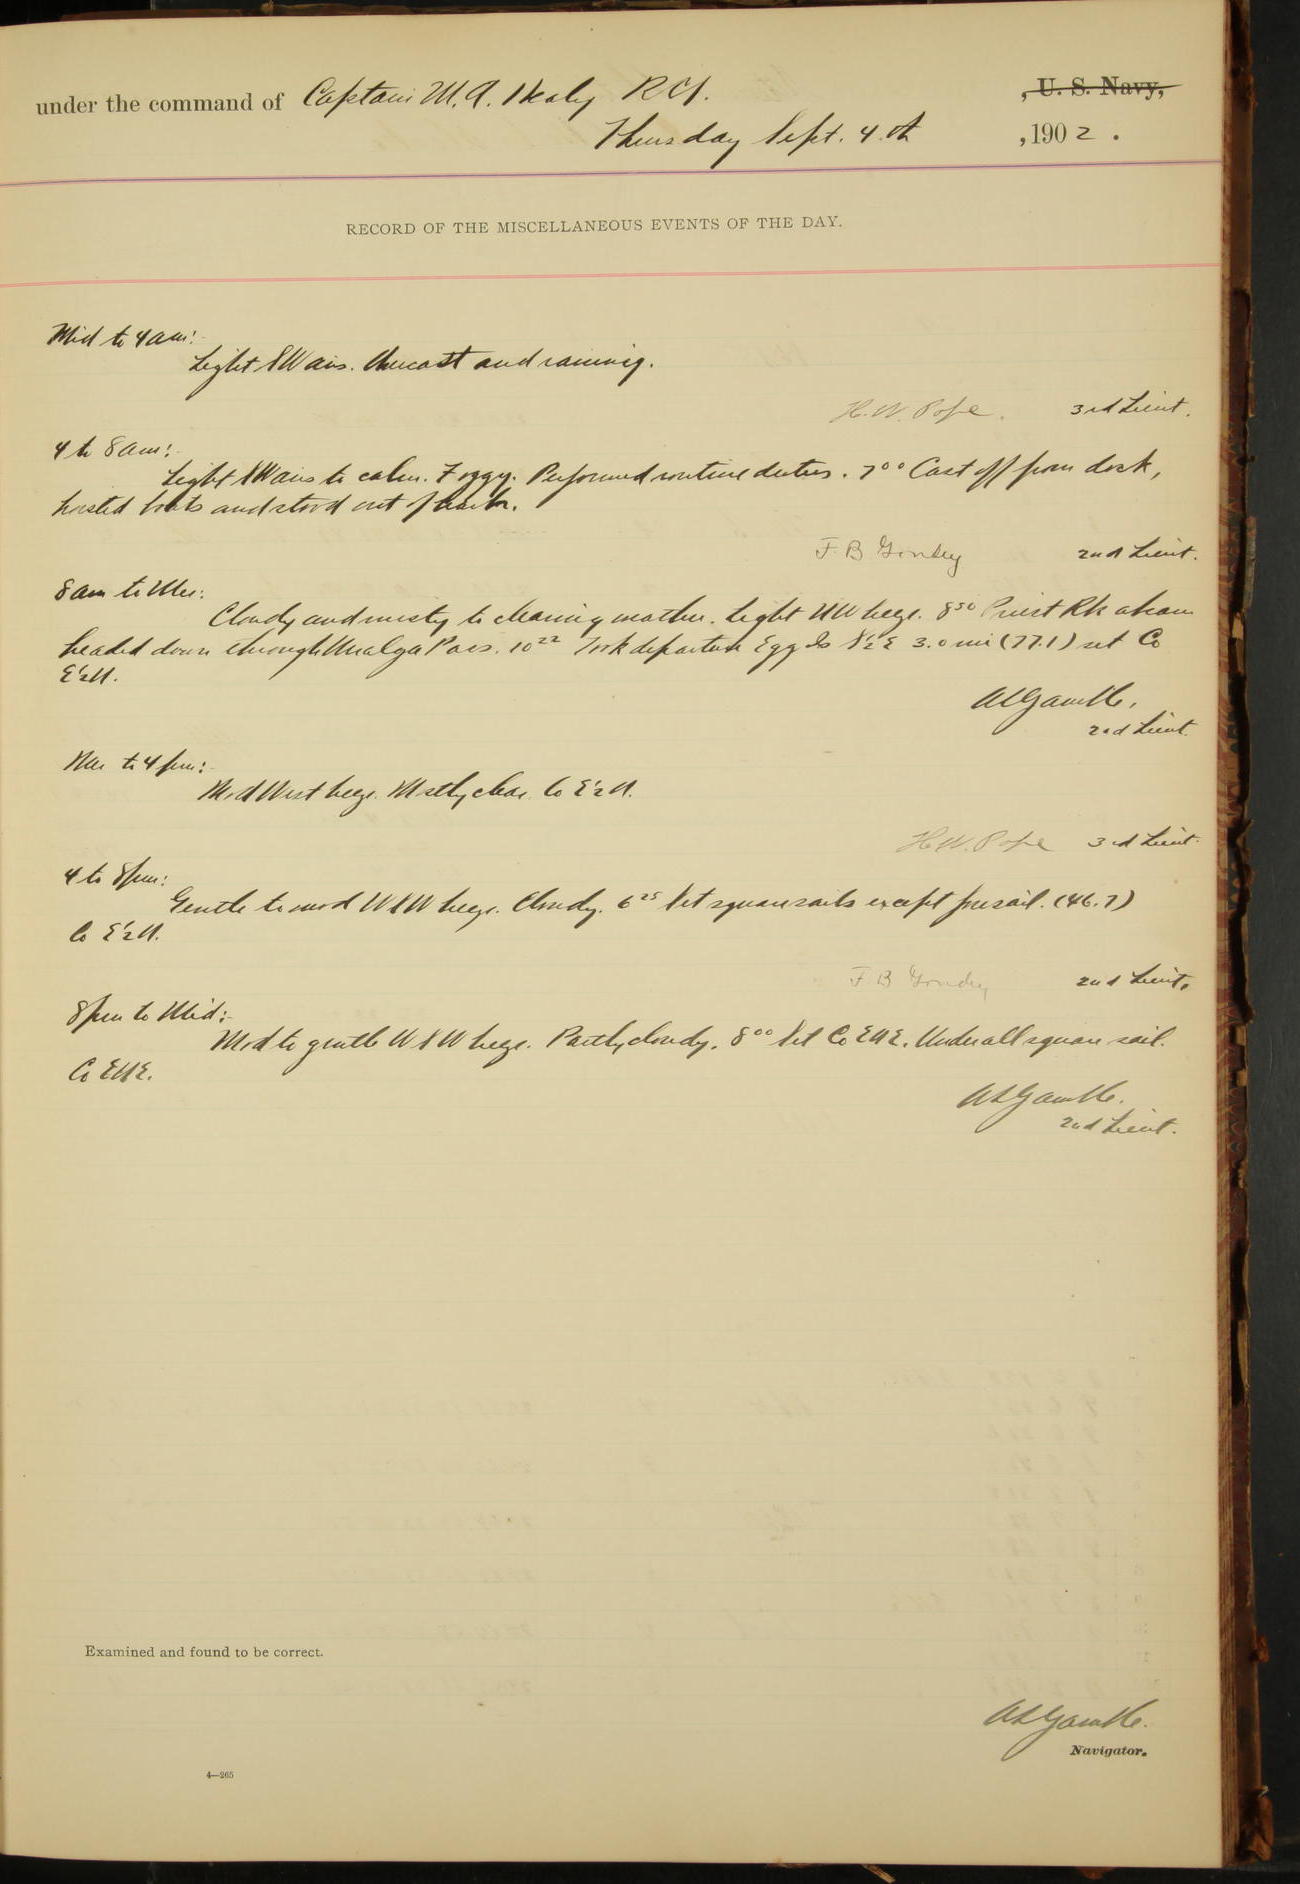 under the command of Captain M. A. Healy RCS. , U. S. Navy,
Thursday Sept. 4th , 1902.
RECORD OF THE MISCELLANEOUS EVENTS OF THE DAY.
Mid to 4 am:
Light SW airs. Overcast and raining.
H. W. Pope. 3rd Lieut.
4 to 8 am:
Light SW airs to calm. Foggy. Performed routine duties. 7⁰⁰ Cast off from dock,
hoisted boats and stood out of harbor.
F B Goudey 2nd Lieut.
8 am to Mer:
Cloudy and misty to clearing weather. Light NW breeze. 8⁵⁰ Priest Rk abeam
headed down through Unalga Pass. 10²² Took departure Egg Is S½E 3.0 mi (77.1) set Co
E½N.
A L Gamble.
2nd Lieut.
Mer to 4 pm:
Mod West breeze. Mostly clear. Co E½N.
H. W. Pope 3rd Lieut.
4 to 8 pm:
Gentle to mod WSW breeze. Cloudy. 6²⁵ Set squaresails except foresail. (46.7)
Co E½N.
F B Goudey 2nd Lieut.
8 pm to Mid:
Mod to gentle WSW breeze. Partly cloudy. 8⁰⁰ Set Co ENE. Under all square sail.
Co ENE.
A L Gamble.
2nd Lieut.
Examined and found to be correct.
A L Gamble.
Navigator.
4—265